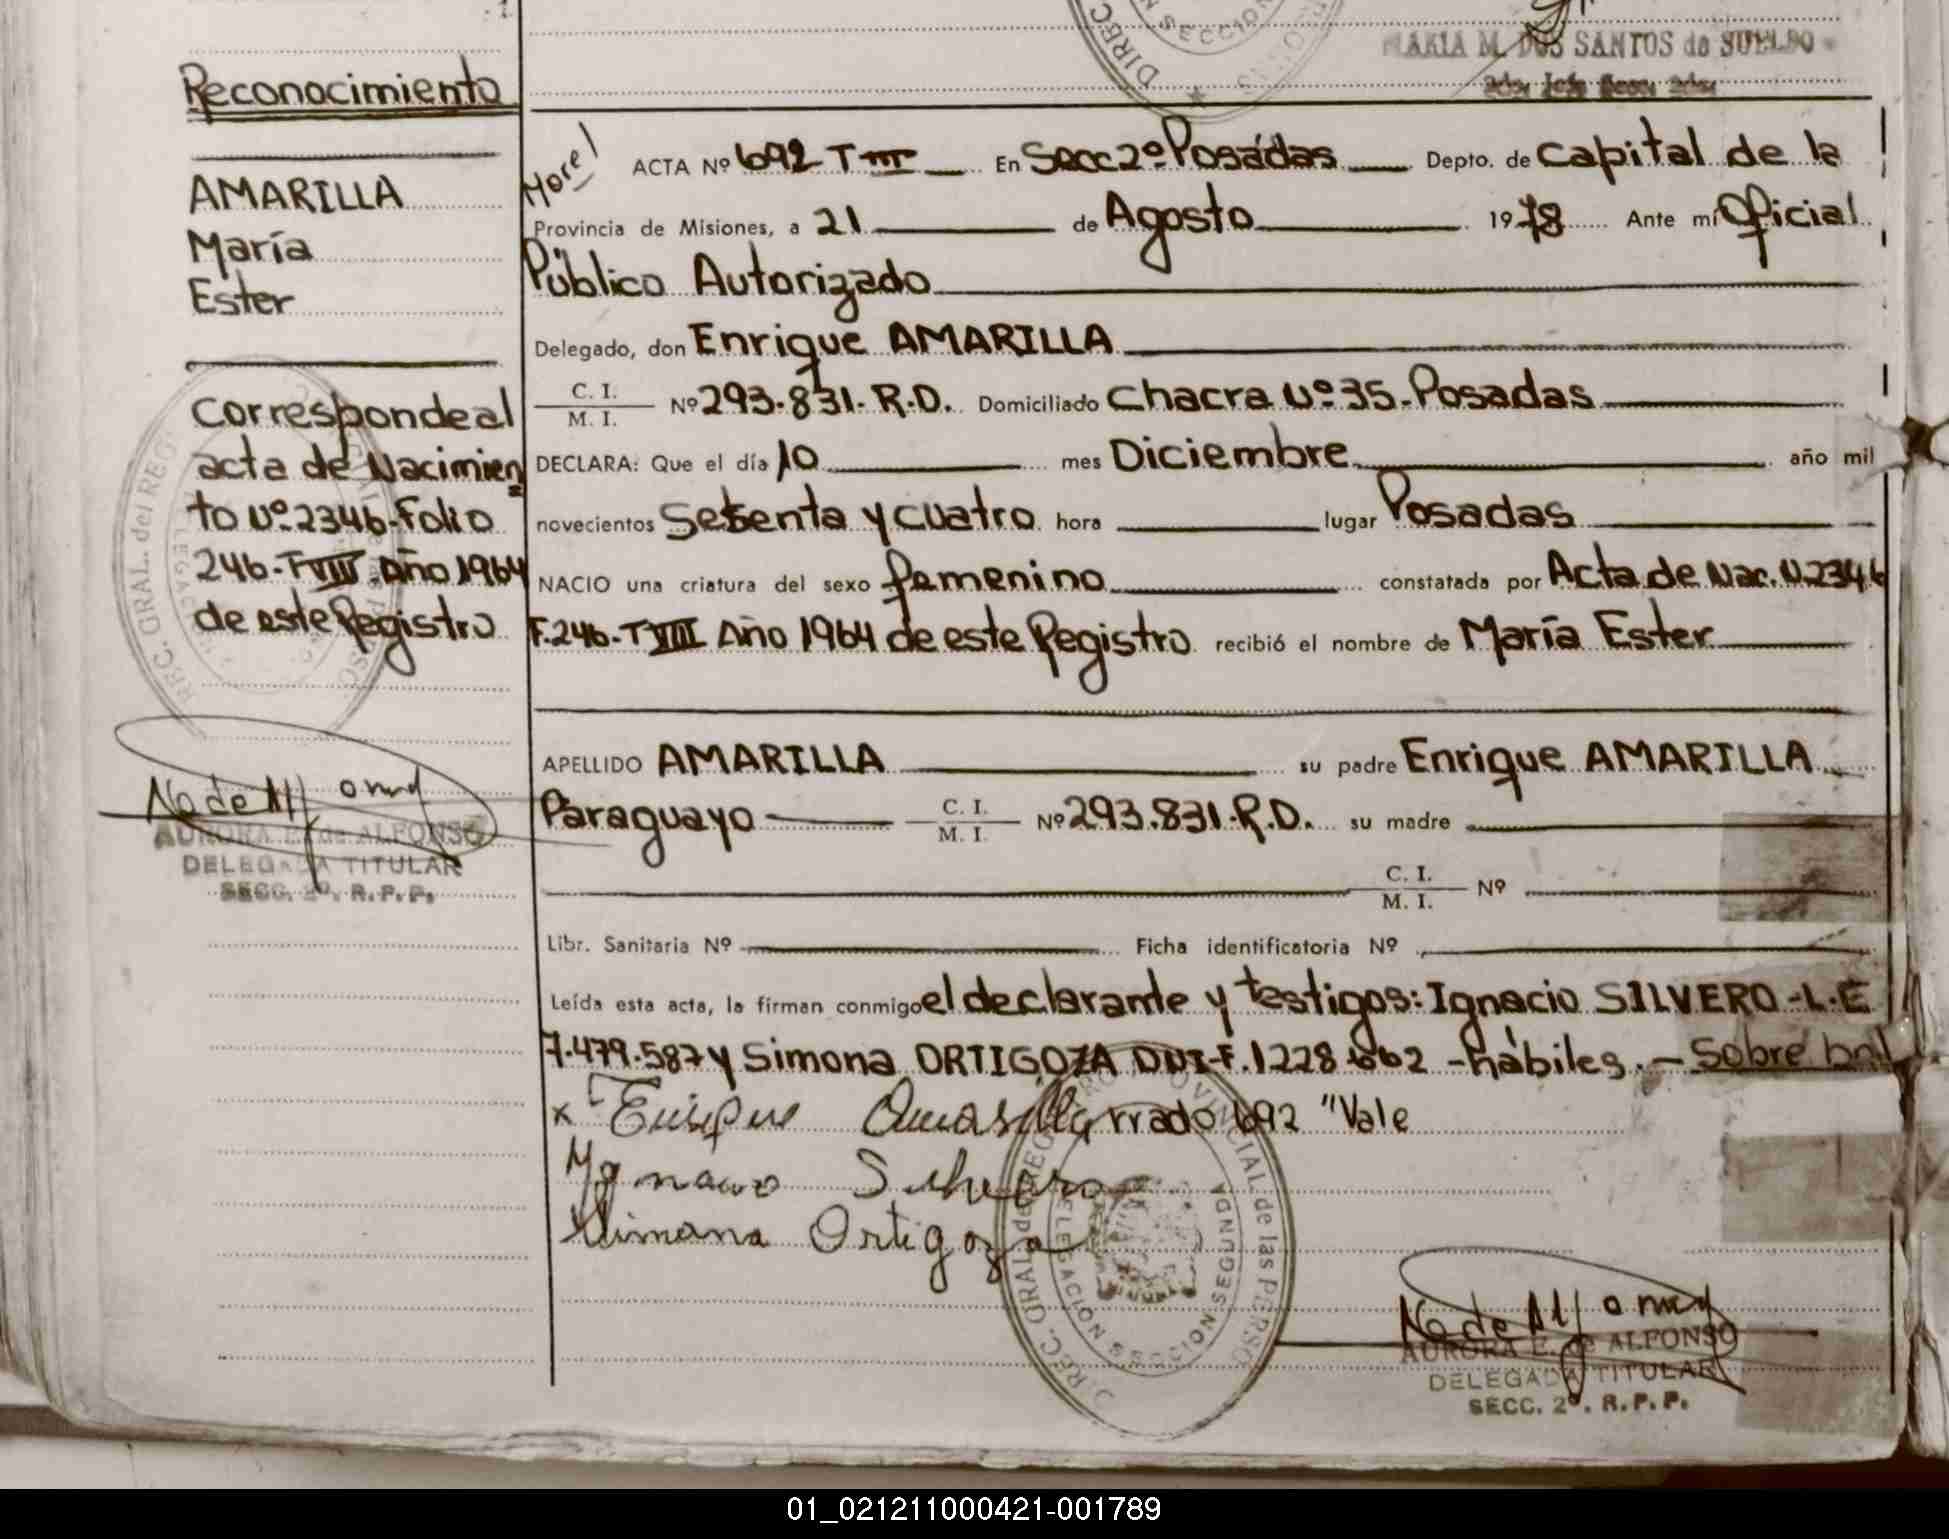 MARIA M. DOS SANTOS de SUELDO
Reconocimiento
AMARILLA
María
Ester
Corresponde al
acta de Nacimien
to Nº 2346-Folio
246-T VIII Año 1964
de este Registro
AURORA E. de ALFONSO
DELEGADA TITULAR
SECC. 2º. R.P.P.
ACTA Nº 692 T III En Secc 2º Posadas Depto. de Capital de la
Provincia de Misiones, a 21 de Agosto 1978 Ante mí Oficial
Público Autorizado
Delegado, don Enrique AMARILLA
C. I.
M. I. Nº 293.831. R.D. Domiciliado Chacra Nº 35-Posadas
DECLARA: Que el día 10 mes Diciembre año mil
novecientos Sesenta y cuatro hora lugar Posadas
NACIO una criatura del sexo femenino constatada por Acta de Nac. N.2346
F.246-T VIII Año 1964 de este Registro recibió el nombre de María Ester
APELLIDO AMARILLA su padre Enrique AMARILLA
Paraguayo C. I.
M. I. Nº 293.831-R.D. su madre
C. I.
M. I. Nº
Libr. Sanitaria Nº Ficha identificatoria Nº
Leída esta acta, la firman conmigo el declarante y testigos: Ignacio SILVERO-L.E
7.479.587 y Simona ORTIGOZA DNI-F.1228.662-hábiles.-Sobre
Enrique Amarilla rrado 692 "Vale
Ygnacio Silvero
Simona Ortigoza
DIREC. GRAL. de REGISTRO PROVINCIAL de las PERSONAS
DELEGACION SECCION SEGUNDA
AURORA E. de ALFONSO
DELEGADA TITULAR
SECC. 2º. R.P.P.
01_021211000421-001789